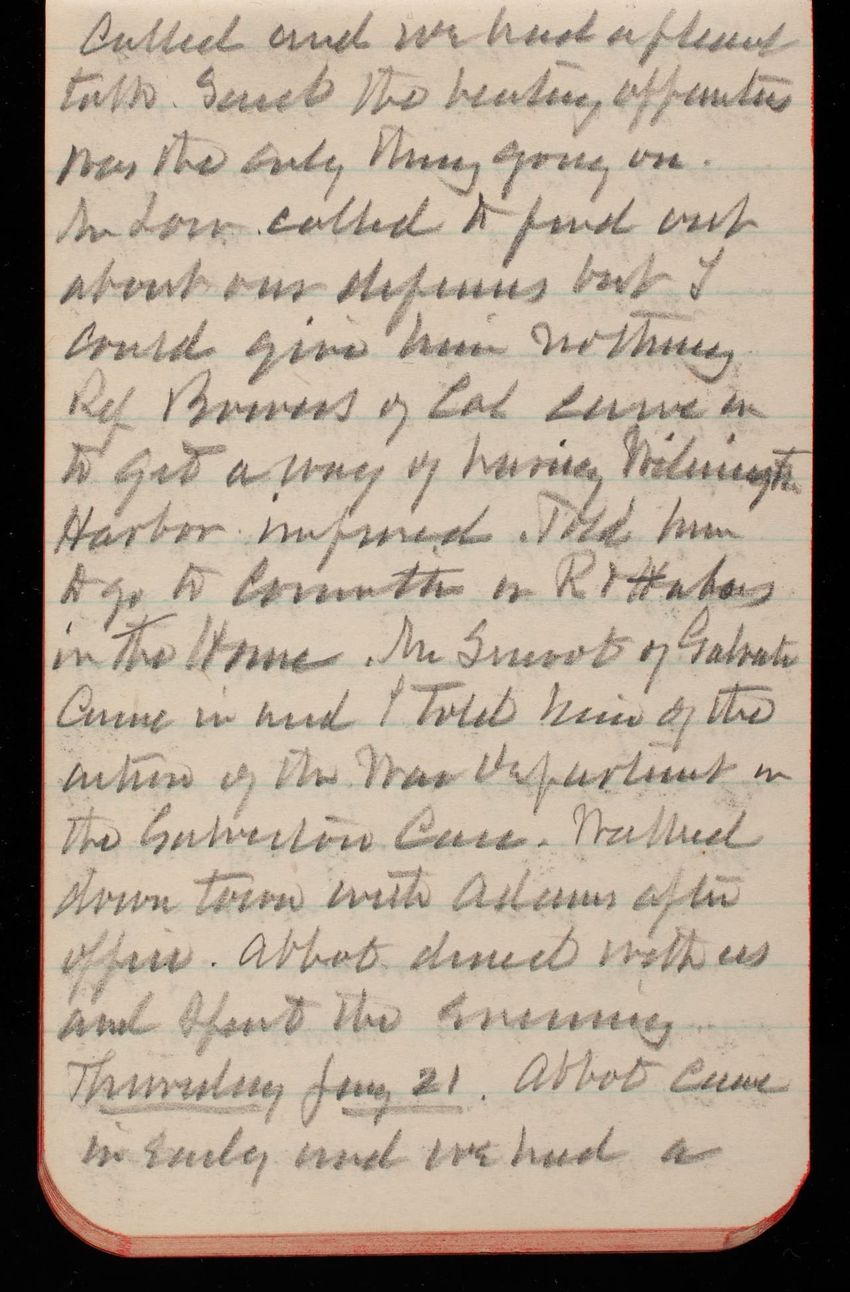 Called and we had a pleasant
talk. Said the heating apparatus
was the only thing going on.
Mr Low called to find out
about our defenses but I
could give him nothing
Rep Bowers of Cal came in
to get a way of having Wilmington
Harbor improved. Told him
to go to Committee on R & Habors
in the House. Mr of Galveston
Came in and I told him of the
action of the War Department in
the Galveston Case. Walked
down town with Adams after
office. Abbot dined with us
and Spent the Evening
Thursday Jany 21. Abbot came
in early and we had a